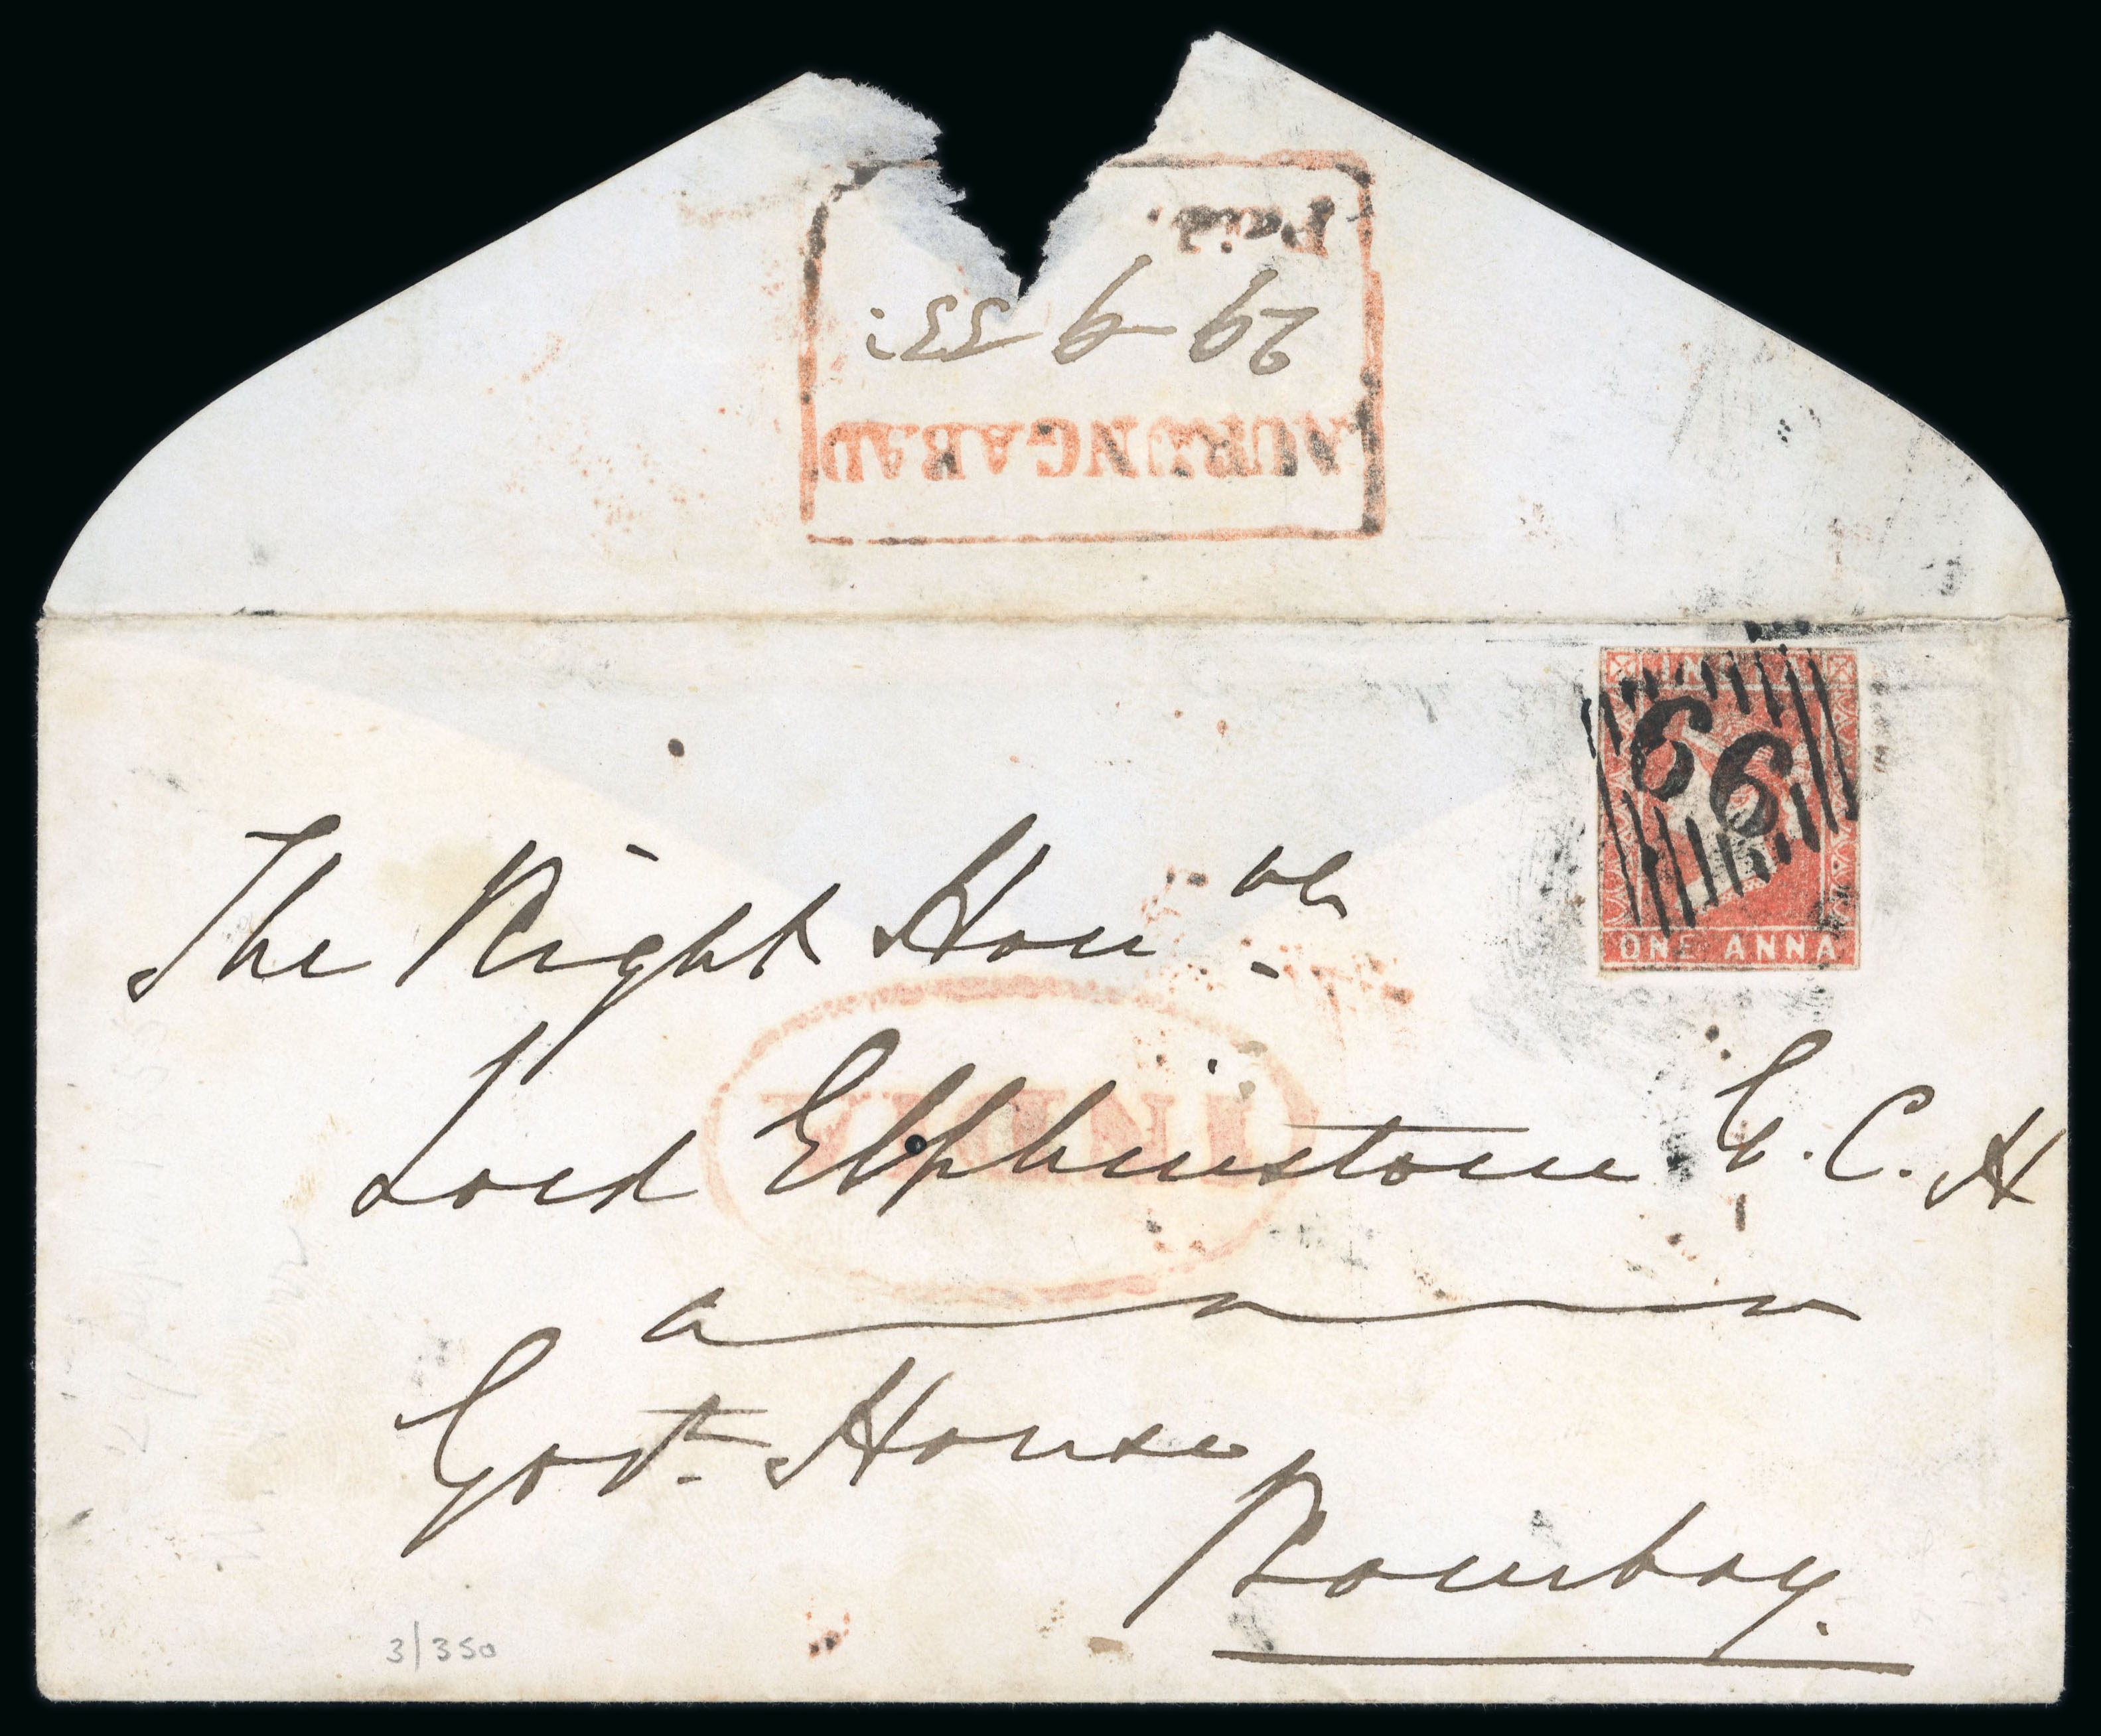 Paid.
29 9 55
AURUNGABAD
INDIA
66
ONE ANNA
The Right Honble
Lord Elphinstone G. C. H
Govt. House
Bombay.
INDIA
3/350